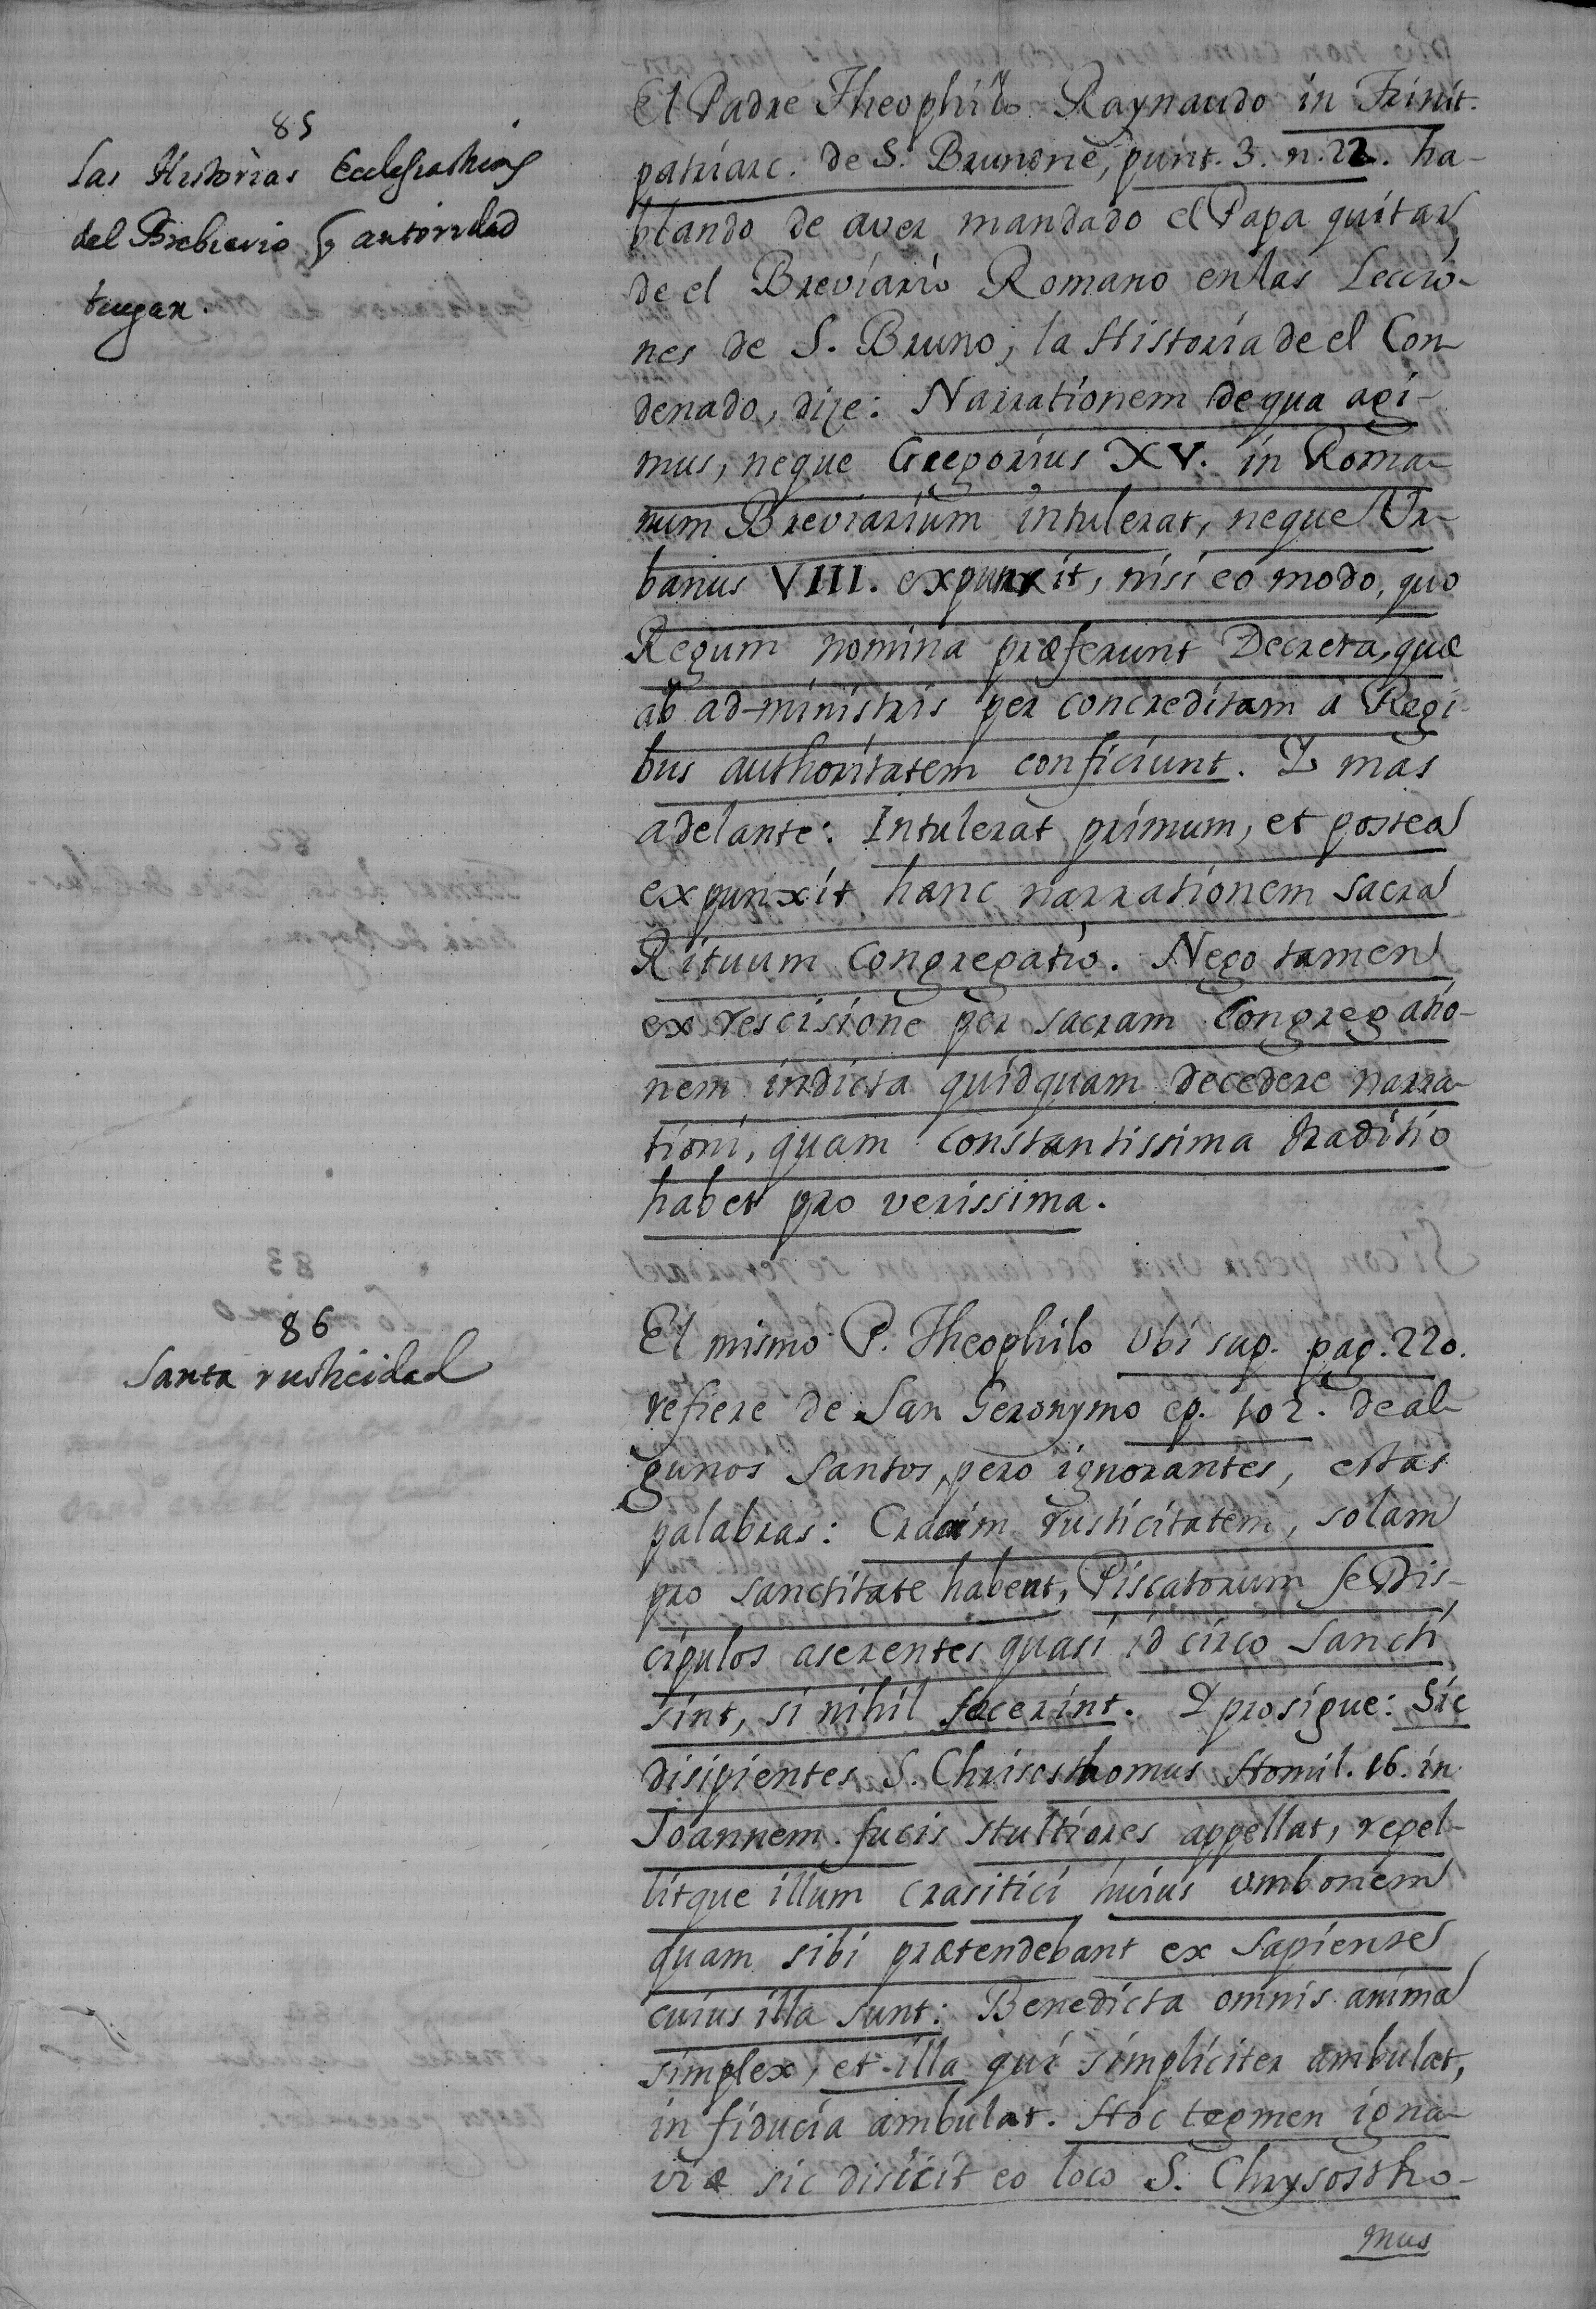 85
Las Historias Ecclesiasticas
del Brebiario q autoridad
tengan.
El Padre Theophilo Raynaudo in Trinit.
patriarc. de S. Brunone, punt. 3. n. 22. ha-
blando de aver mandado el Papa quitar
de el Breviario Romano en las Leccio-
nes de S. Bruno, la Historia de el Con-
denado, dize: Narrationem de qua agi-
mus, neque Gregorius XV. in Roma-
num Breviarium intulerat, neque Ur-
banus VIII. expunxit, nisi eo modo, quo
Regum nomina præferunt Decreta, quæ
ab ad-ministris per concreditam a Regi-
bus authoritatem conficiunt. Y mas
adelante: Intulerat primum, et postea
expunxit hanc narrationem sacra
Rituum Congregatio. Nego tamen
ex rescisione per sacram Congregatio-
nem indicta quidquam decedere narra-
tioni, quam constantissima traditio
habet pro verissima.
86
Santa rusticidad
El mismo P. Theophilo Ubi sup. pag. 220.
refiere de San Geronymo ep. 102. de al-
gunos Santos, pero ignorantes, estas
palabras: Crasim rusticitatem, solam
pro sanctitate habent, Piscatorum se Dis-
cipulos aserentes quasi id circo Sancti
sint, si nihil scierint. Y prosigue: Sic
disipientes S. Chrisosthomus Homil. 16. in
Joannem. fucis stultiores appellat, repel-
litque illum crasitici huius umbonem
quam sibi prætendebant ex Sapiente
cuius illa sunt: Benedicta omnis anima
simplex, et illa qui simpliciter ambulat,
in fiducia ambulat. Hoc tegmen igna-
viæ sic disicit eo loco S. Chrysostho-
mus